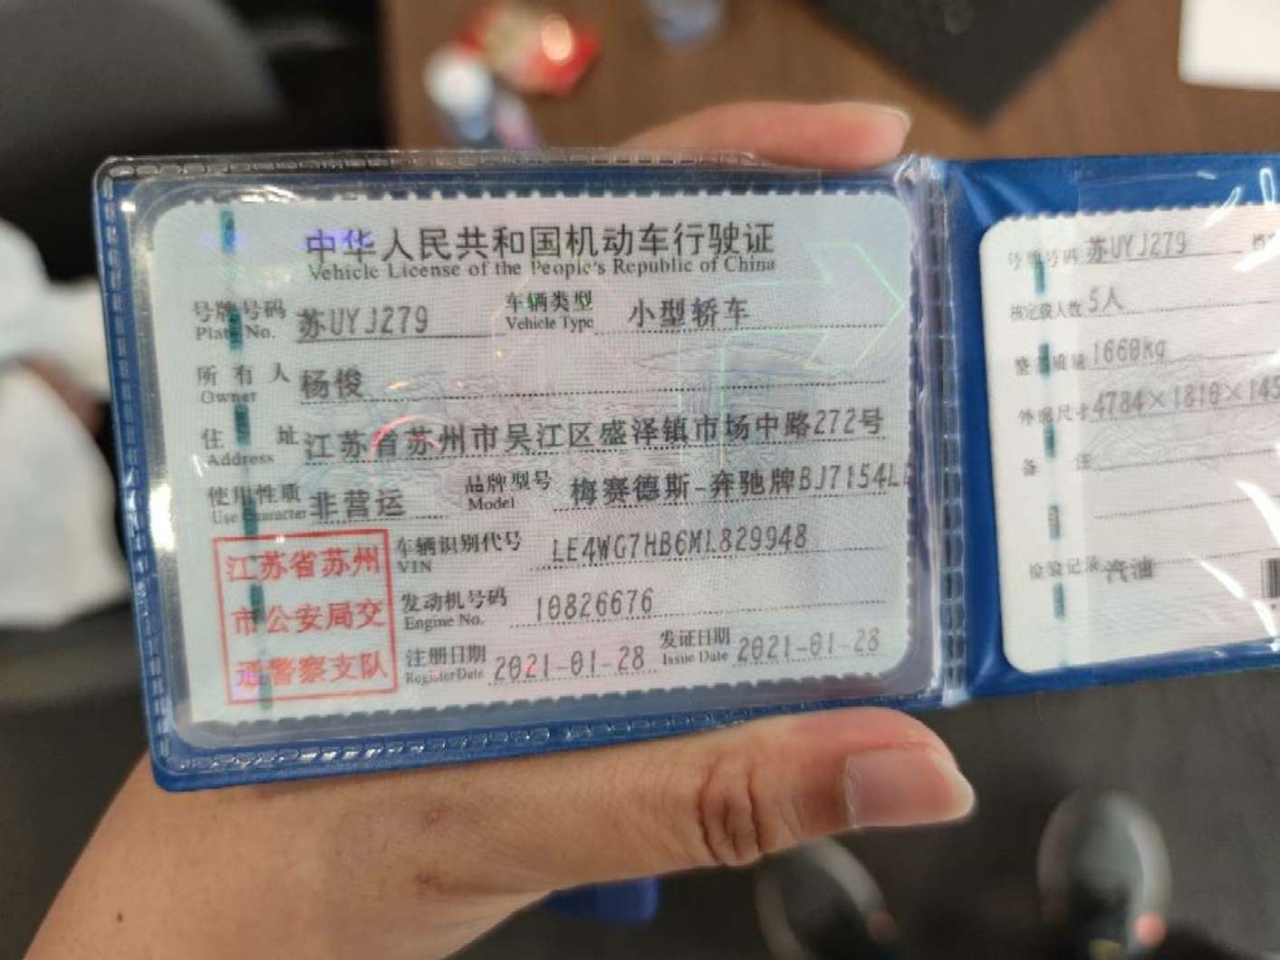 中华人民共和国机动车行驶证
Vehicle License of the People's Republic of China
号牌号码 苏UYJ279 车辆类型 小型轿车
Plate No. Vehicle Type
所有人 杨俊
Owner
住址 江苏省苏州市吴江区盛泽镇市场中路272号
Address
使用性质 非营运 品牌型号 梅赛德斯-奔驰牌BJ7154L
Use Character Model
江苏省苏州
市公安局交
通警察支队
车辆识别代号 LE4WG7HB6ML829948
VIN
发动机号码 10826676
Engine No.
注册日期 2021-01-28 发证日期 2021-01-28
Register Date Issue Date
号牌号码 苏UYJ279
核定载人数 5人
整备质量 1660kg
外廓尺寸 4784×1810×145
备注
检验记录 汽油